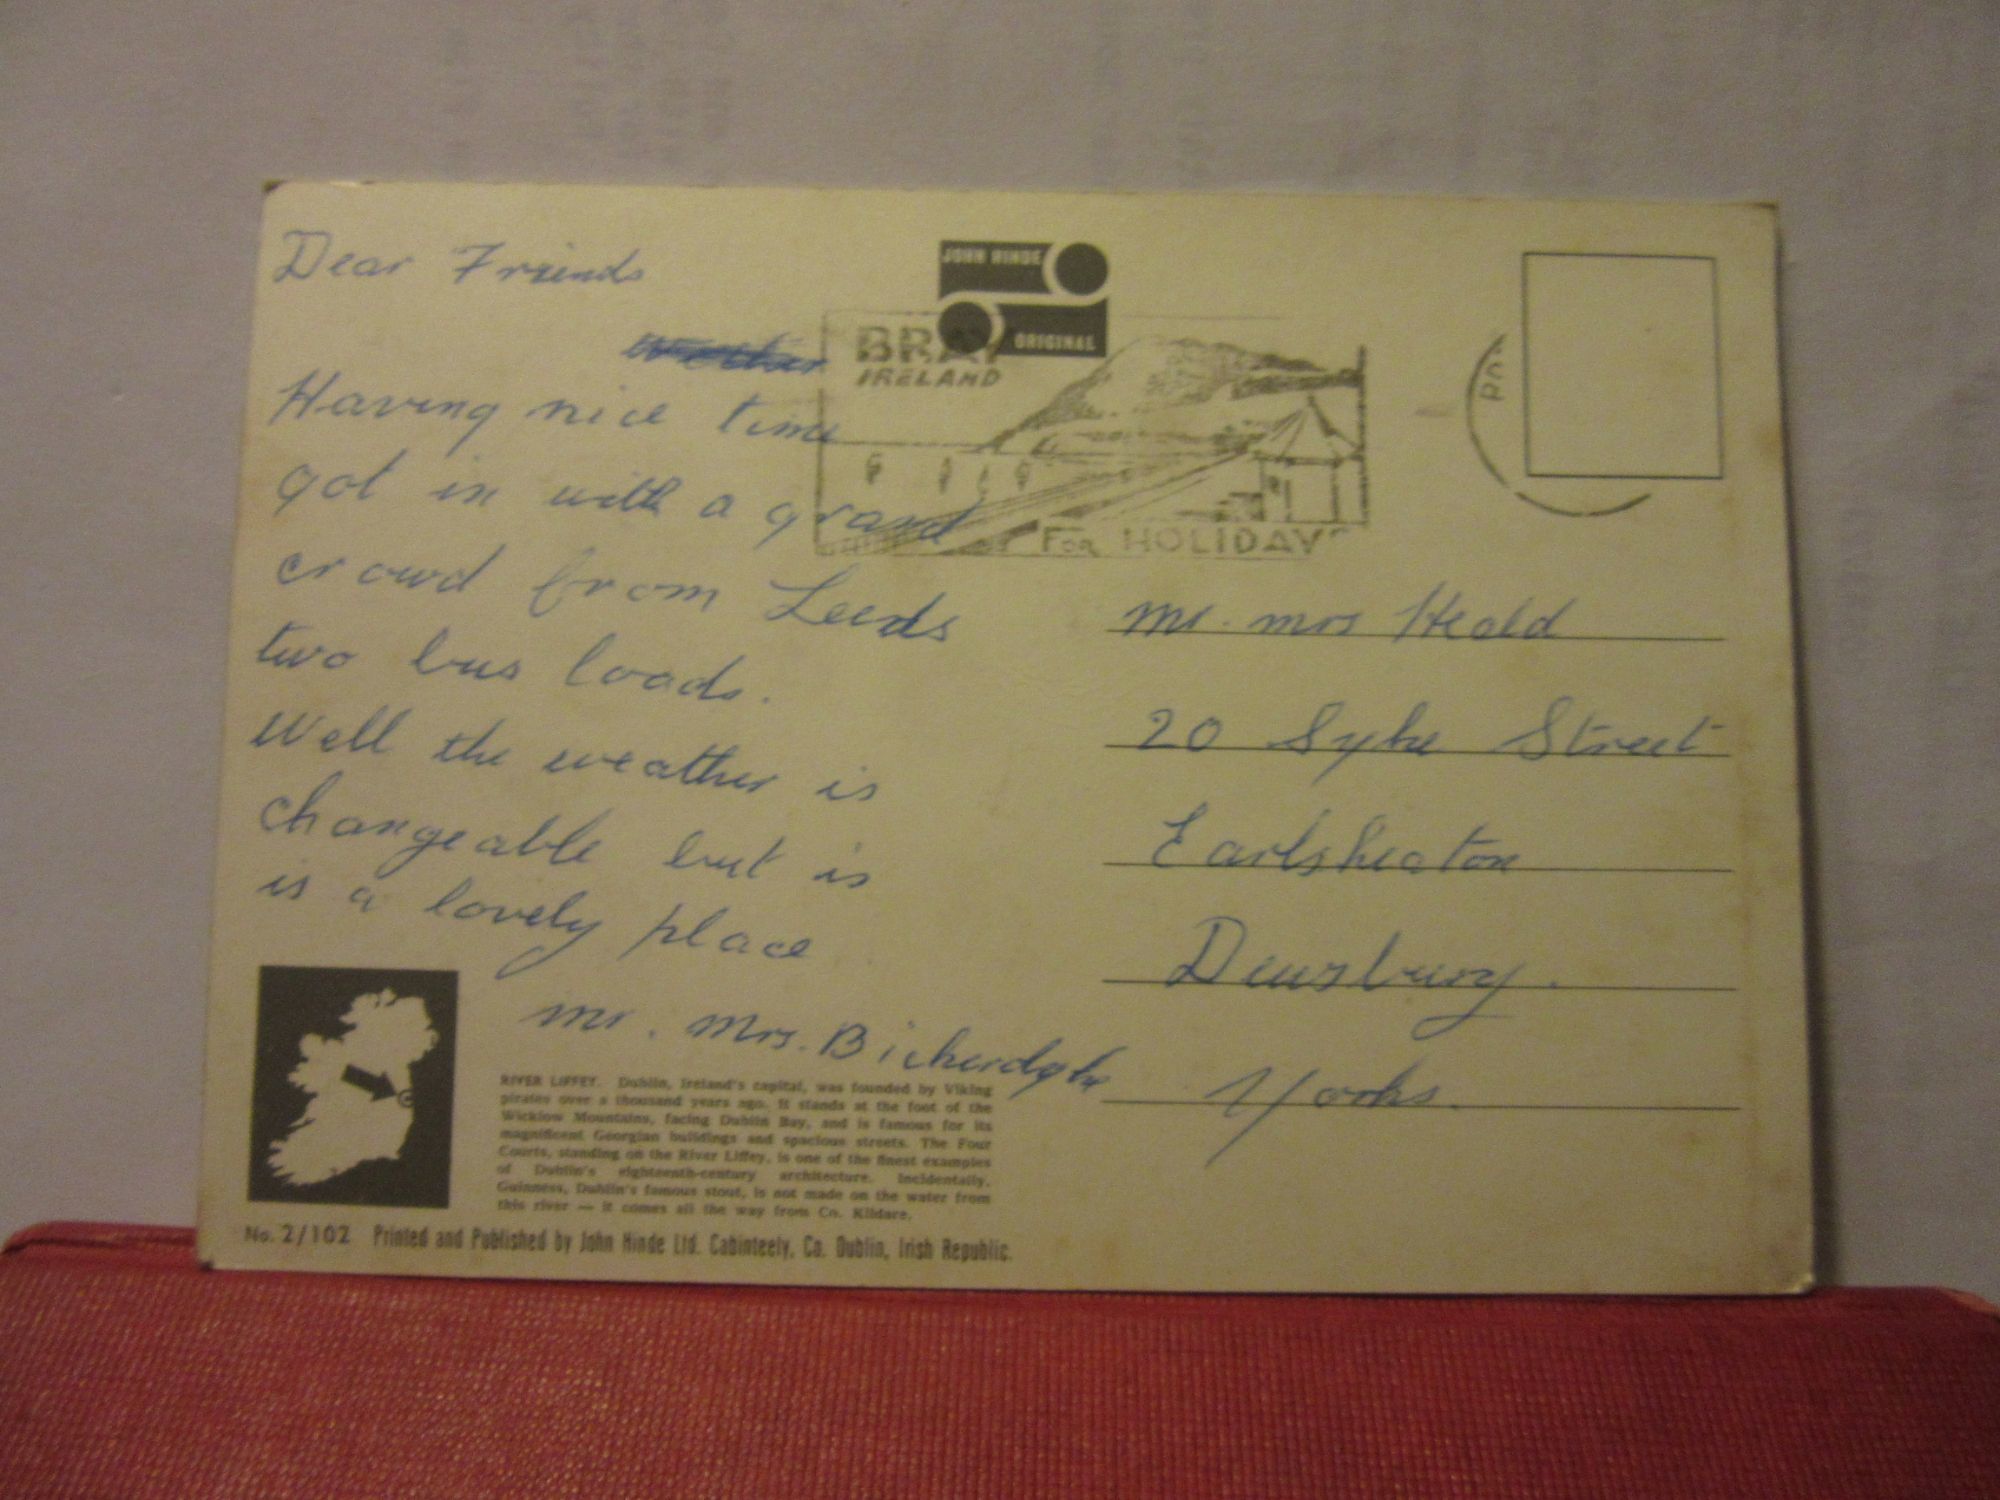 Dear Friends
Having nice time
got in with a grand
crowd from Leeds
two bus loads.
Well the weather is
changeable but is
is a lovely place
mr. Mrs.
JOHN HINDE
ORIGINAL
BRAY
IRELAND
FOR HOLIDAYS
mr. mrs Heald
20 Syke Street
Earlsheaton
Dewsbury.
Yorks.
RIVER LIFFEY. Dublin, Ireland's capital, was founded by Viking
pirates over a thousand years ago. It stands at the foot of the
Wicklow Mountains, facing Dublin Bay, and is famous for its
magnificent Georgian buildings and spacious streets. The Four
Courts, standing on the River Liffey, is one of the finest examples
of Dublin's eighteenth-century architecture. Incidentally,
Guinness, Dublin's famous stout, is not made on the water from
this river — it comes all the way from Co. Kildare.
No. 2/102 Printed and Published by John Hinde Ltd. Cabinteely, Co. Dublin, Irish Republic.